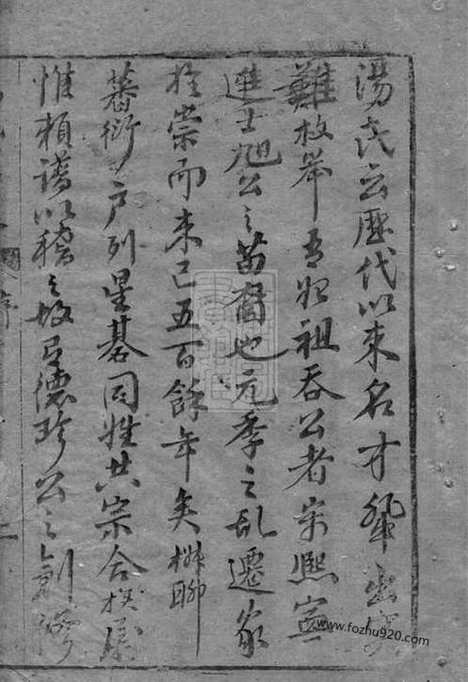 湯氏云歷代以來名才輩出
難枚舉吾始祖吞公者宋熙寧
進士旭公之苗裔也元季之乱遷家
於崇而来已五百餘年矣椒聊
蕃衍户列星碁同姓共宗合族
惟賴譜以稽之故有德珍公之創譜
www.fozhu920.com